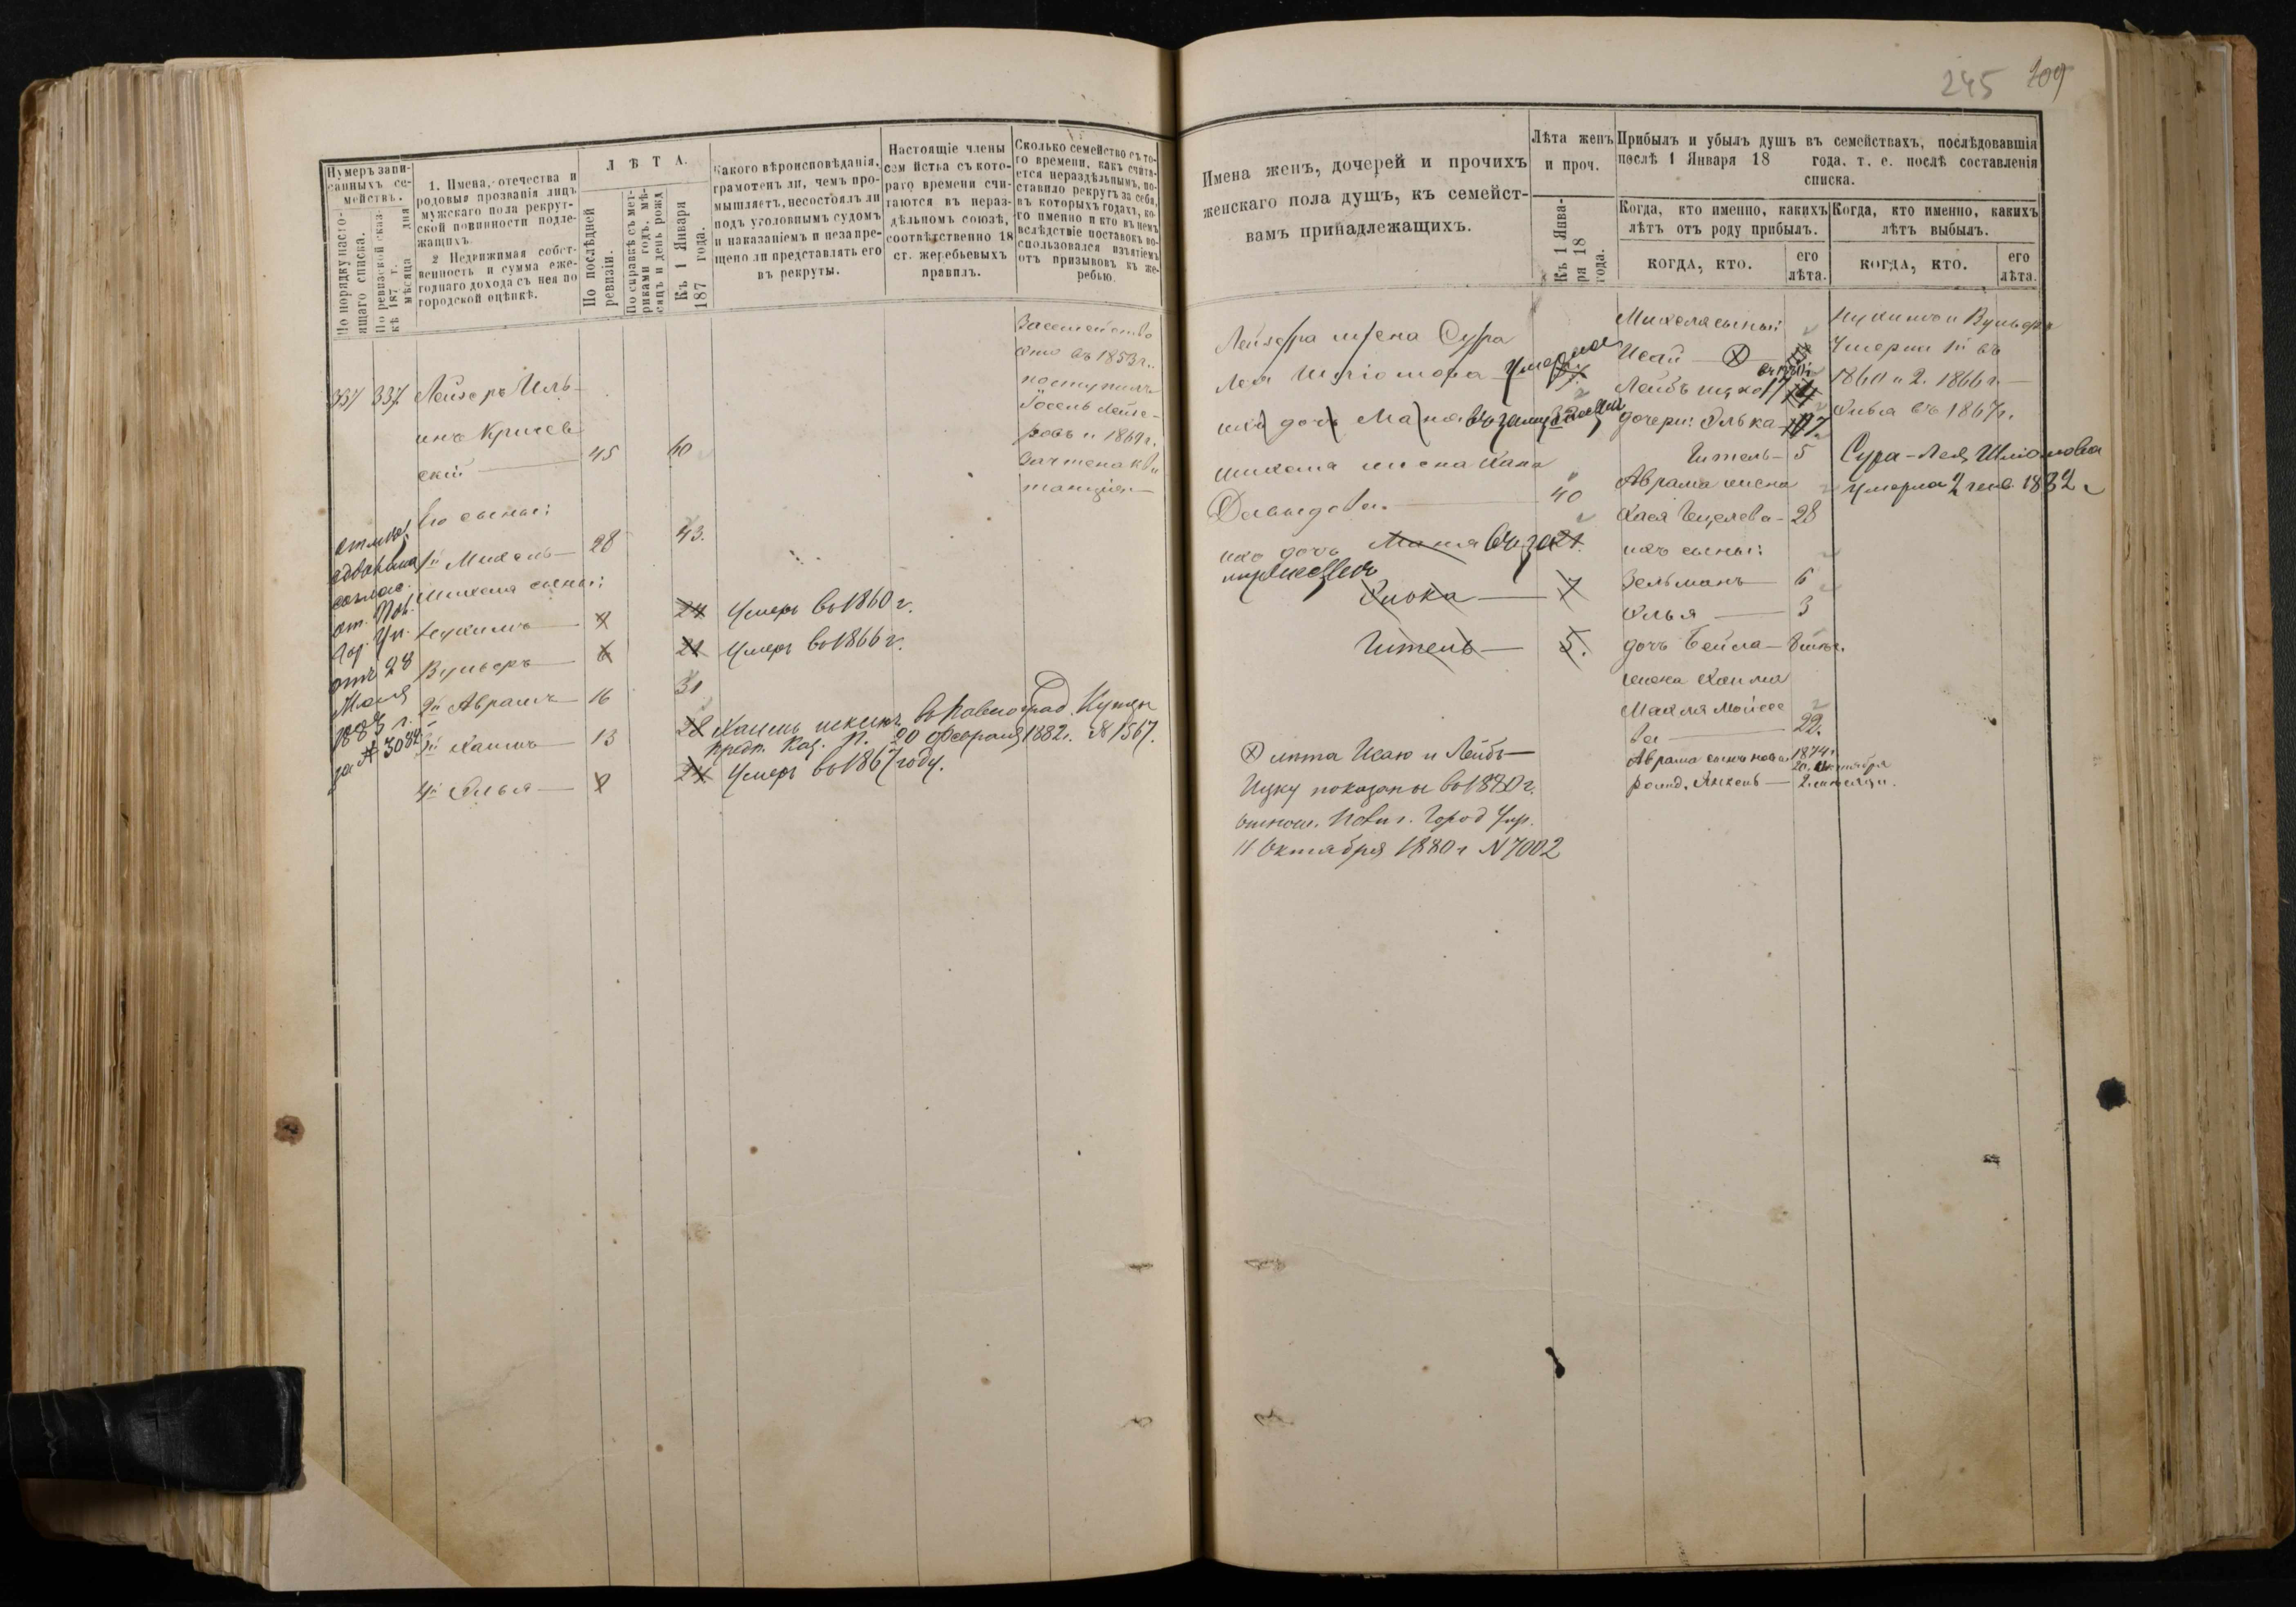 245 109
Нумеръ запи-
санныхъ се-
мействъ.
По порядку насто-
ящаго списка.
По ревизской сказ-
кѣ 187 г.
мѣсяца дня
1. Имена, отечества и
родовыя прозванія лицъ
мужскаго пола рекрут-
ской повинности подле-
жащихъ.
2 Недвижимая собст-
венность и сумма еже-
годнаго дохода съ нея по
городской оцѣнкѣ.
ЛѢТА.
По послѣдней
ревизіи.
По справкѣ съ мет-
риками годъ, мѣ-
сяцъ и день рожд
Къ 1 Января
187 года.
Какого вѣроисповѣданія,
грамотенъ ли, чемъ про-
мышляетъ, несостоялъ ли
подъ уголовнымъ судомъ
и наказаніемъ и незапре-
щено ли представлять его
въ рекруты.
Настоящіе члены
сем йства съ кото-
раго времени счи-
таются въ нераз-
дѣльномъ союзѣ,
соотвѣтственно 18
ст. жеребьевыхъ
правилъ.
Сколько семейство съ то-
го времени, какъ счита-
ется нераздѣльнымъ, по-
ставило рекрутъ за себя,
въ которыхъ годахъ, ко-
го именно и кто въ немъ
вслѣдствіе поставокъ во-
спользовался изъятіемъ
отъ призывовъ къ же-
ребью.
337 337 Лейзеръ Иль-
инъ Кричев
скій — 45 60
Его сынъ:
1й Михель — 28 43.
Михеля сыны:
Нухимъ — 8 24 Умеръ въ 1860 г.
Вульфъ — 6 21 Умеръ въ 1866 г.
2й Абрамъ — 16 31
3й Хаимъ — 13 28 Хаимъ исключ. въ Павлоград. Купцы
предп. Каз. П. 20 Февраля 1882 г. № 1567.
4й Элья — 8 24 Умеръ въ 1867 году.
от. Пав.
Гор. Уп.
отъ 28
Мая
188 г.
за № 3082
За семейство
это въ 1853 г.
поступилъ
Іосель Лейзе-
ровъ и 1869 г.
зачтена кви
танція —
Имена женъ, дочерей и прочихъ
женскаго пола душъ, къ семейст-
вамъ принадлежащихъ.
Лѣта женъ
и проч.
Къ 1 Янва-
ря 18
года.
Прибылъ и убылъ душъ въ семействахъ, послѣдовавшія
послѣ 1 Января 18 года, т. е. послѣ составленія
списка.
Когда, кто именно, какихъ
лѣтъ отъ роду прибылъ.
Когда, кто именно, какихъ
лѣтъ выбылъ.
КОГДА, КТО.
его
лѣта.
КОГДА, КТО.
его
лѣта.
Лейзера жена Сура
Лея Шліомова Умерла
ихъ дочь
Михеля жена Хана
Давыдова. — 40
ихъ дочь Маша 21.
Элька — 7
Гитель — 5.
Ⓧ лѣта Исаю и Лейбъ—
Ицку показаны въ 1880 г.
отнош. Павл. Город Упр.
11 Октября 1880 г N 7002
Михеля сыны:
Исай — Ⓧ
Лейбъ Ицко 17
дочери: Элька —
Гитель — 5
Абрама жена
Хася Гецелева — 28
ихъ сыны:
Зельманъ — 6
Элья — 3
дочь Бейла — 8 мѣс.
жена Хаима
Махля Мойсее
ва — 22.
Абрама сынъ ново
рожд. Янкель — 2 мѣсяц.
1874 г.
Нухимъ и Вульфъ
Умерли 1й въ
1860 и 2. 1866 г. —
Элья въ 1867 г.
Сура-Лея Шліомова
умерла 2 генв. 1882 г